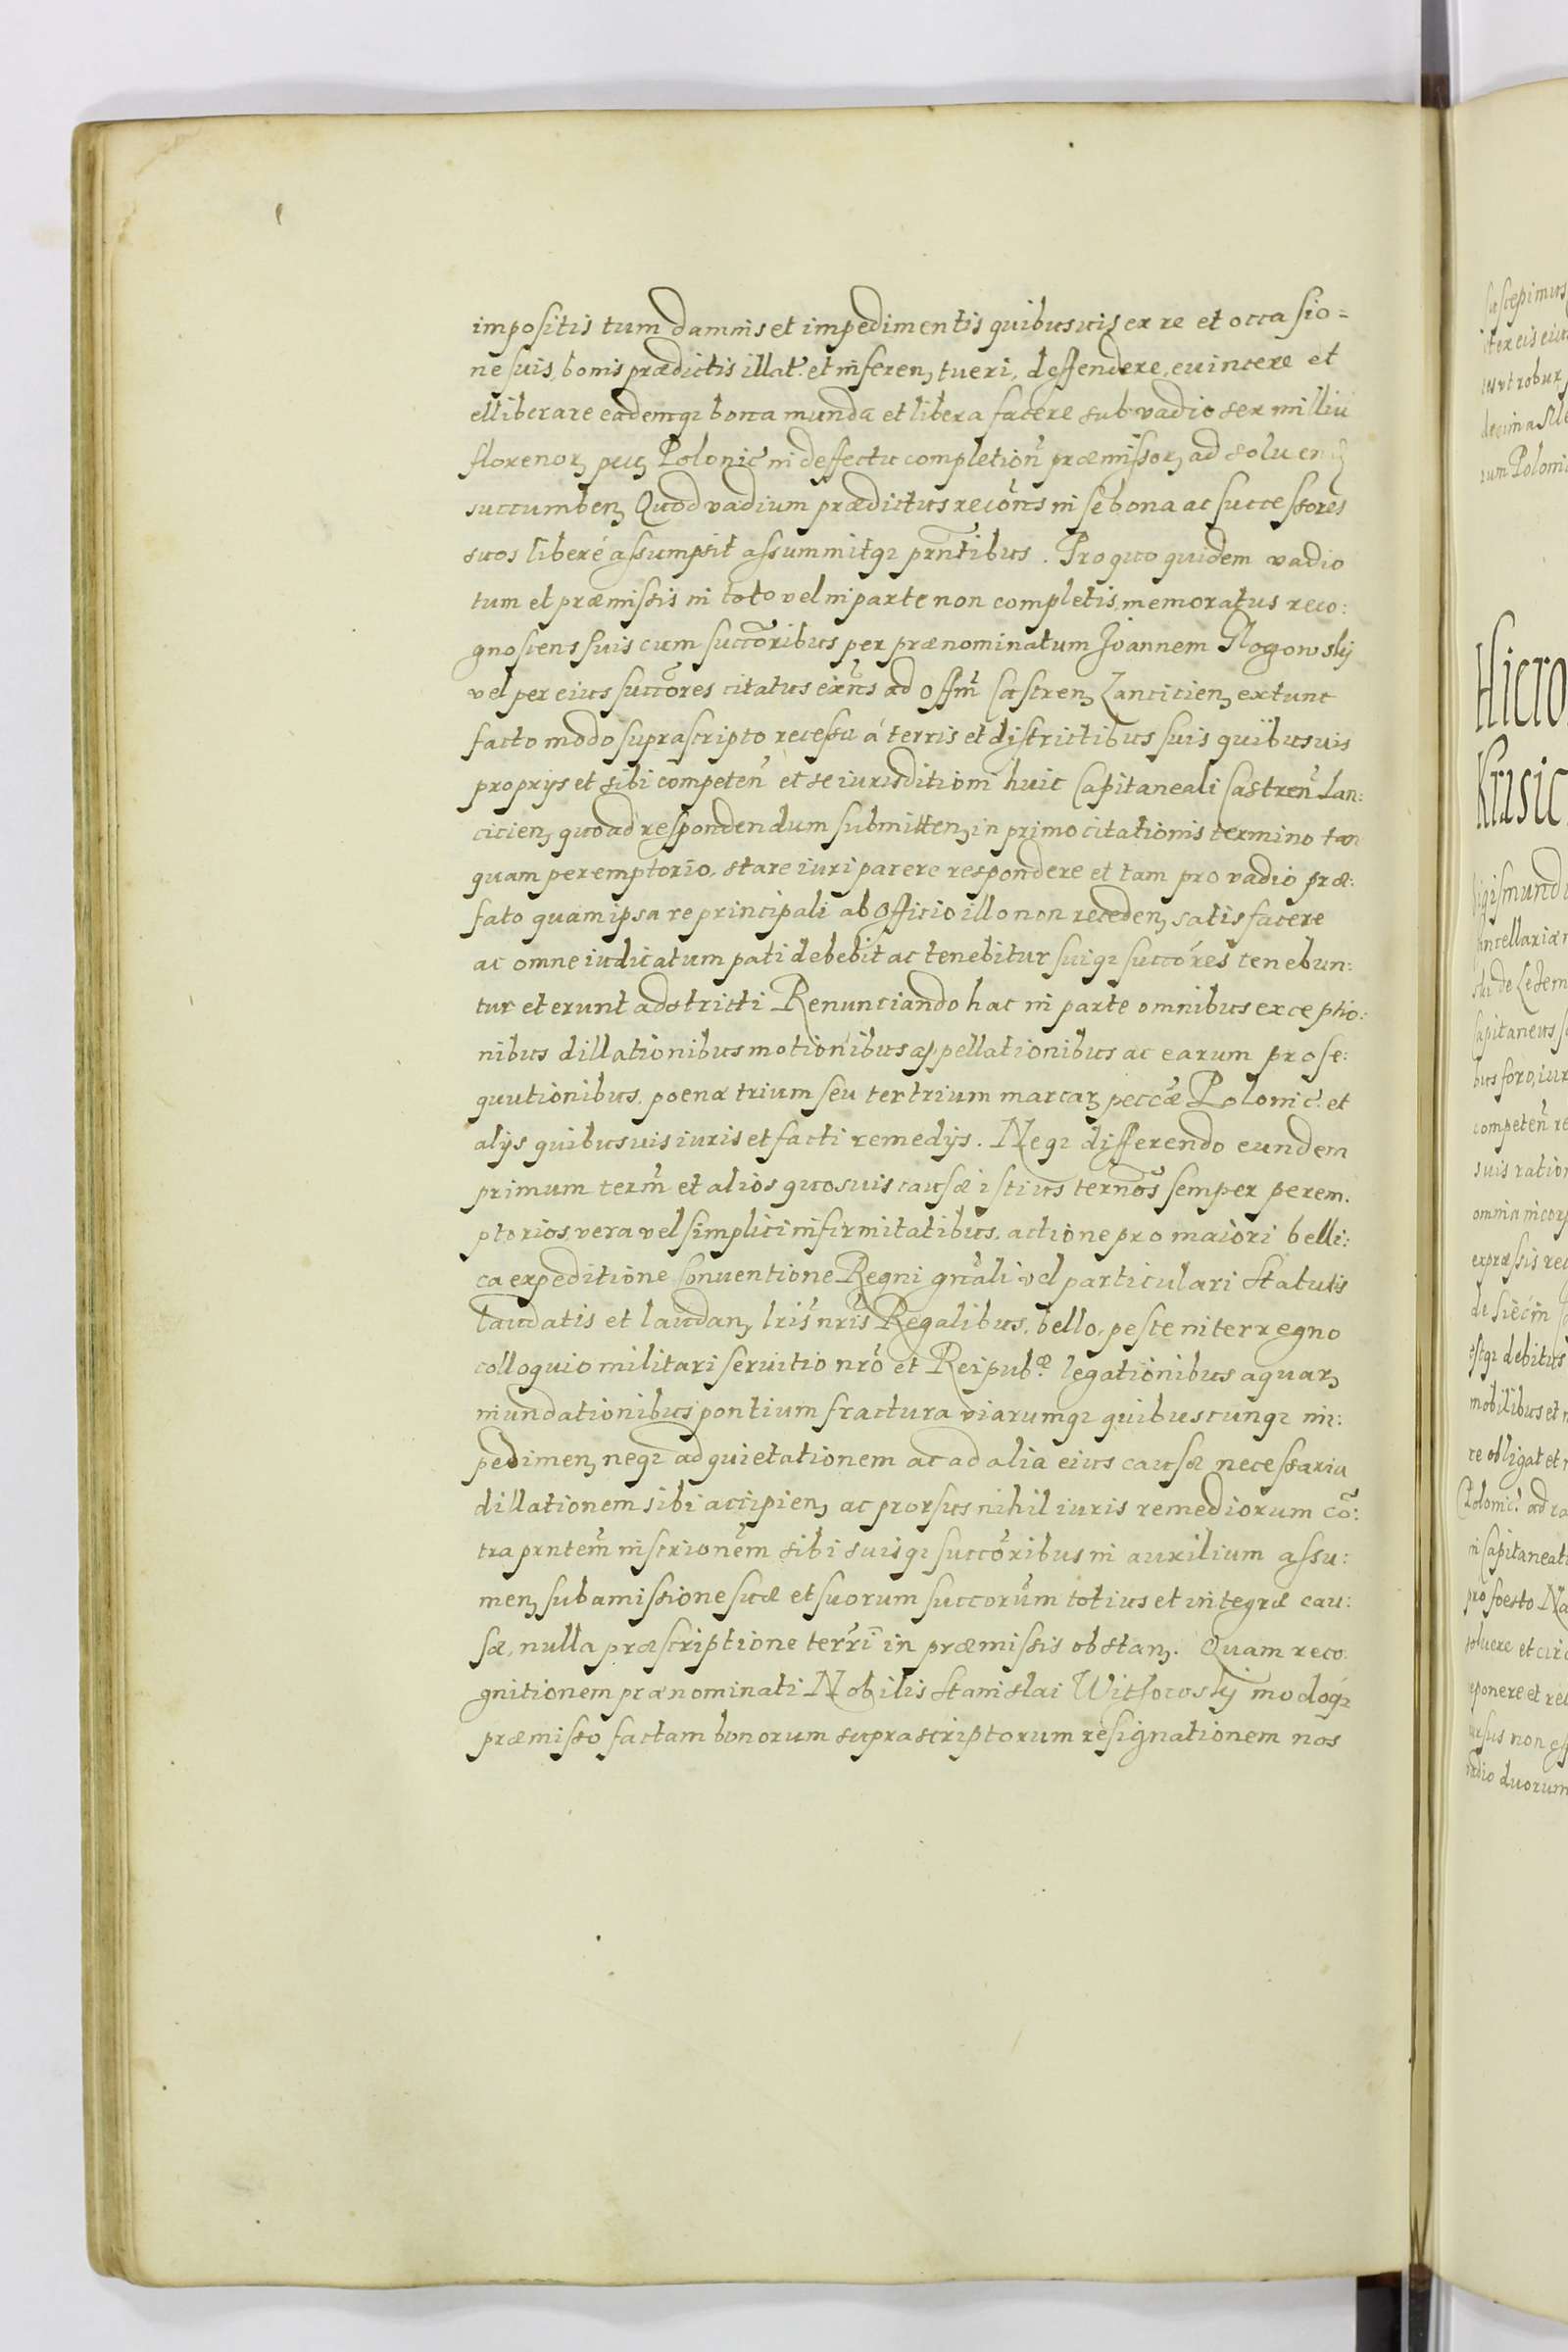 impositis tum damnis et impedimentis quibusuis ex re et occasio=
ne suis, bonis prædictis illat: et inferenꝫ tueri, deffendere, euincere et
elliberare eademqꝫ bona munda et libera facere sub vadio sex milliū
florenorꝫ pecꝫ Polonic̃ in deffectu completion̄ præmissorꝫ ad soluenđ
succumbenꝫ Quod vadium prædictus recōns in se bona ac successores
suos liberé assumpsit assummitqꝫ prn̄tibus. Pro quo quidem vadio
tum et præmissis in toto vel in parte non completis, memoratus reco:
gnoscens suis cum succōribus per prænominatum Joannem Glogowskÿ
vel per eius succōres citatus exn̄s ad Offm̄ Castrenꝫ Lancicienꝫ extunc
facto modo suprascripto recessu á terris et districtibus suis quibusuis
proprijs et sibi competen̄ et se iurisditioni huic Capitaneali Castren̄ Lan:
cicienꝫ quo ad respondendum submittenꝫ in primo citationis termino tan
quam peremptorio, stare iuri parere respondere et tam pro vadio præ:
fato quam ipsa re principali ab Officio illo non recedenꝫ satisfacere
ac omne iudicatum pati debebit ac tenebitur suiqꝫ succōres tenebun:
tur et erunt adstricti Renunciando hac in parte omnibus exceptio:
nibus dillationibus motionibus appellationibus ac earum prose:
quutionibus, poena trium seu ter trium marcarꝫ peccæ̃ Polonic̃: et
alijs quibusuis iuris et facti remedijs. Neqꝫ differendo eundem
primum term̄ et alios quosuis causæ istius ternōs semper perem.
ptorios, vera vel simplici infirmitatibus, actione pro maiori belli:
ca expeditione Conuentione Regni gnāli vel particulari Statutis
laudatis et laudanꝫ lris̄ nris̄ Regalibus, bello, peste interregno
colloquio militari seruitio nrō et Reipub:æ legationibus aquarꝫ
inundationibus pontium fractura viarumqꝫ quibuscunqꝫ im:
pedimenꝫ neqꝫ ad quietationem ac ad alia eius causæ necessaria
dillationem sibi accipienꝫ ac prorsus nihil iuris remediorum cō:
tra prntem̄ inscrionēm sibi suisqꝫ succōribus in auxilium assu:
menꝫ sub amissione suæ et suorum succorūm totius et integræ cau:
sæ, nulla præscriptione terrī in præmissis obstanꝫ. Quam reco
gnitionem prænominati Nobilis Stanislai Witkowskÿ modoqꝫ
præmisso factam bonorum suprascriptorum resignationem nos
Hiero
Krusic